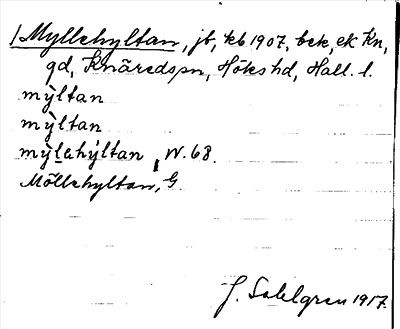 / Myllehyltan, jb, kb 1907, bek, ek Kn,
gd, Knäredspn, Höks hd, Hall. l.
mỳltan
mỳltan
mỳlehýltan, W. 68.
Möllehyltan, G
J. Sahlgren 1917.